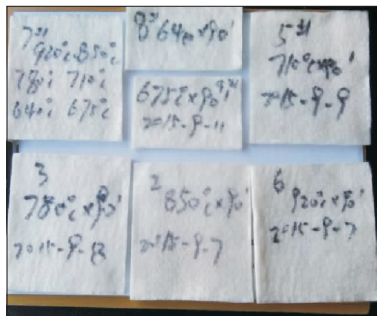 7#
920℃ 850℃
780℃ 710℃
640℃ 675℃
8# 640×90'
675℃×90' 9#
2015-9-11
5#
710℃×90'
2015-9-9
3
780℃×90'
2015-9-12
2
850℃×90'
2015-9-7
6
920℃×90'
2015-9-7